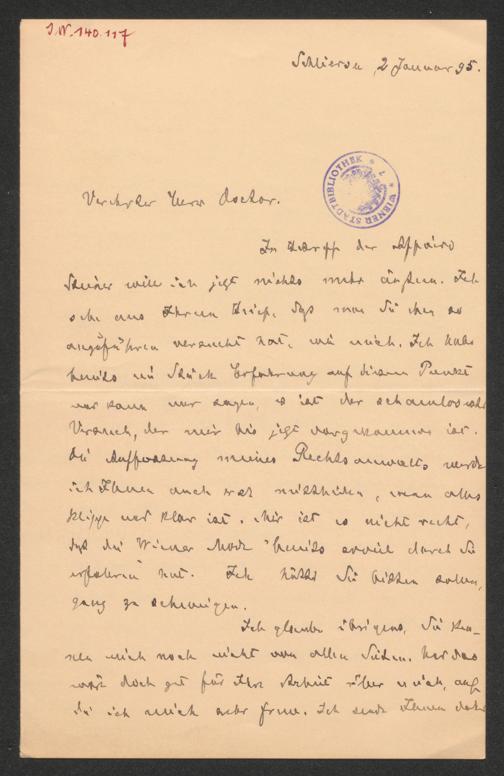 J.N. 140.117
Schliersee, 2 Januar 95.
WIENER STADTBIBLIOTHEK
Verehrter Herr Doctor.
In Betreff der Affaire
will ich jetzt nichts mehr äußern. Ich
sehe aus Ihrem Brief, daß man Sie eben so
anzuführen versucht hat, wie mich. Ich habe
bereits ein Stück Erfahrung auf diesem Punkt
und kann nur sagen, es ist der schamloseste
Versuch, der mir bis jetzt vorgekommen ist.
Die Auffassung meines Rechtsanwalts werde
ich Ihnen auch erst mittheilen, wenn alles
klipp und klar ist. Mir ist es nicht recht,
daß die Wiener Mode "bereits soviel durch Sie
erfahren" hat. Ich hätte Sie bitten sollen,
ganz zu schweigen.
Ich glaube übrigens, Sie ken-
nen mich noch nicht von allen Seiten. Und das
wäre doch gut für Ihre Arbeit über mich, auf
die ich mich sehr freue. Ich sende Ihnen